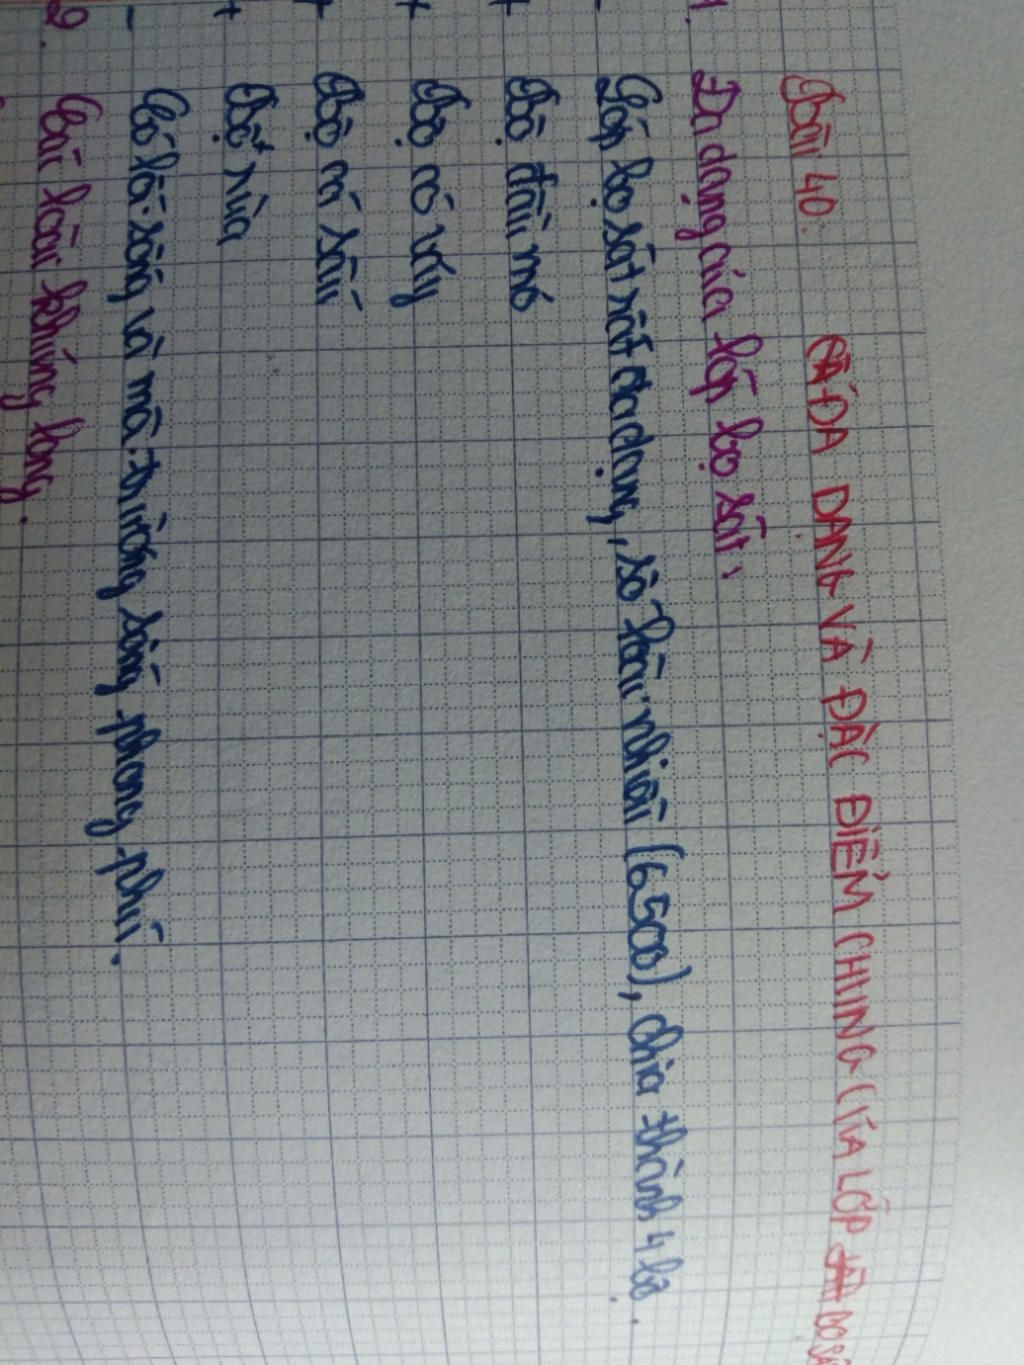 Bài 40: ĐA DẠNG VÀ ĐẶC ĐIỂM CHUNG CỦA LỚP BÒ SÁ
1. Đa dạng của lớp bò sát:
- Lớp bò sát rất đa dạng, số loài nhiều (6500), chia thành 4 bộ.
+ Bộ đầu mỏ
+ Bộ có vảy
+ Bộ cá sấu
+ Bộ rùa
- Có lối sống và môi trường sống phong phú.
2. Các loài khủng long.